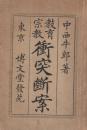 中西牛郎著
教育宗教衝突断案
東京 博文堂發兌